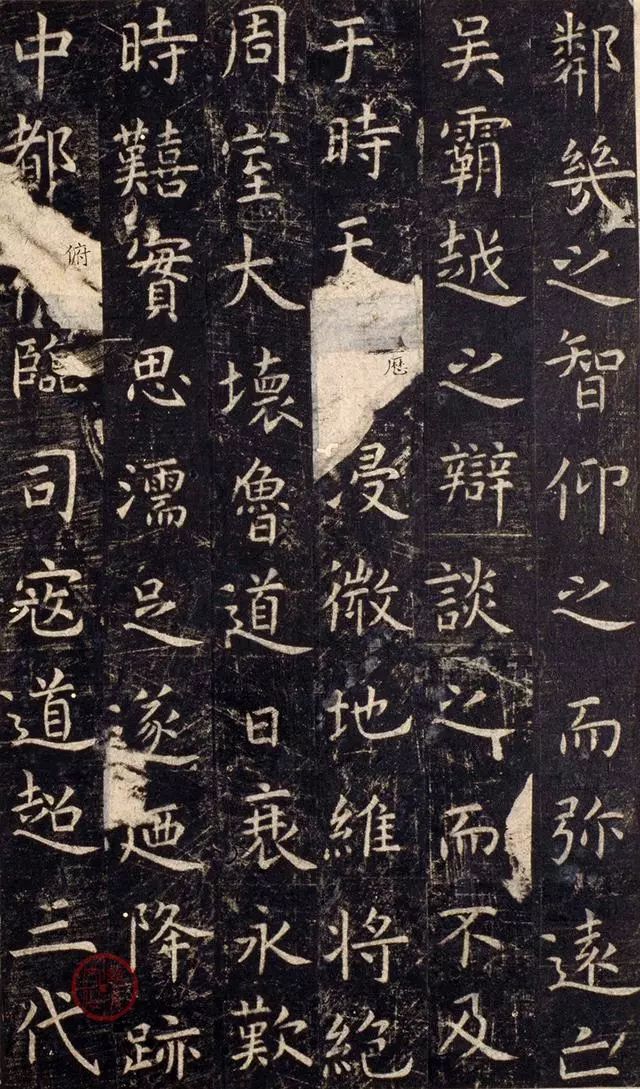 鄰幾之智仰之而弥遠亡
吴霸越之辯談之而不及
于時天厯浸微地維将絶
周室大壞魯道日衰永歎
時囏實思濡足遂廼降跡
中都俯臨司寇道超三代